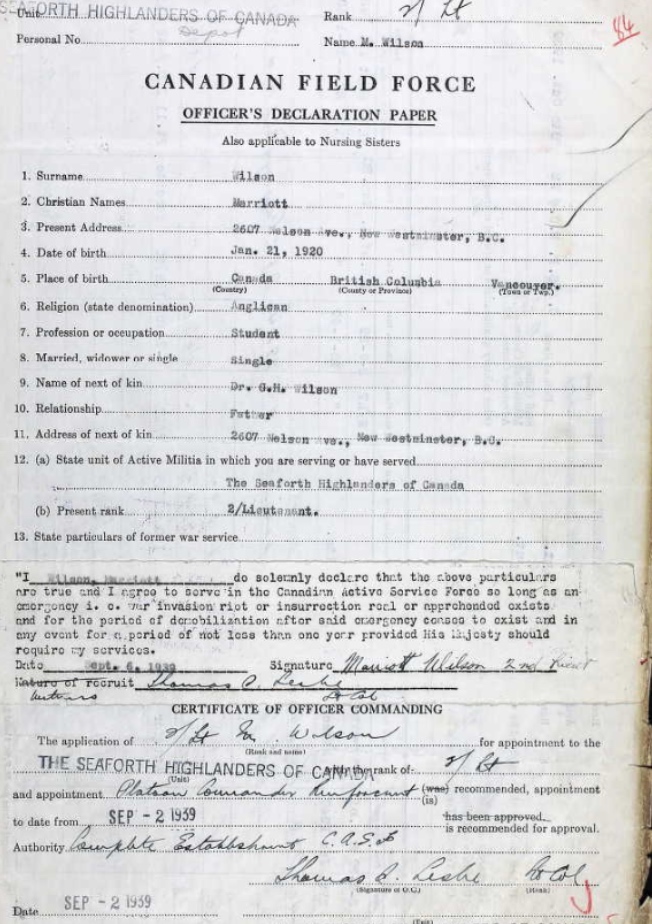 Unit SEAFORTH HIGHLANDERS OF CANADA Rank 2/Lt 84
Depot
Personal No. Name M. Wilson
CANADIAN FIELD FORCE
OFFICER'S DECLARATION PAPER
Also applicable to Nursing Sisters
1. Surname Wilson
2. Christian Names Marriott
3. Present Address 2607 Nelson Ave., New Westminster, B.C.
4. Date of birth Jan. 21, 1920
5. Place of birth Canada British Columbia Vancouver.
(Country) (County or Province) (Town or Twp.)
6. Religion (state denomination) Anglican
7. Profession or occupation Student
8. Married, widower or single Single
9. Name of next of kin Dr. G.H. Wilson
10. Relationship Father
11. Address of next of kin 2607 Nelson Ave., New Westminster, B.C.
12. (a) State unit of Active Militia in which you are serving or have served
The Seaforth Highlanders of Canada
(b) Present rank 2/Lieutenant.
13. State particulars of former war service
"I Wilson, Marriott do solemnly declare that the above particulars
are true and I agree to serve in the Canadian Active Service Force so long as an
emergency i. e. war invasion riot or insurrection real or apprehended exists
and for the period of demobilization after said emergency ceases to exist and in
any event for a period of not less than one year provided His Majesty should
require my services.
Date Sept. 6, 1939 Signature Marriott Wilson 2nd Lieut
Nature of recruit Thomas A. Leslie Lt Col
witness
CERTIFICATE OF OFFICER COMMANDING
The application of 2/Lt M. Wilson for appointment to the
(Rank and name)
THE SEAFORTH HIGHLANDERS OF CANADA with the rank of 2/Lt
(Unit)
and appointment Platoon Commander Reinforcement (was) recommended, appointment
(is)
to date from SEP - 2 1939 has been approved.
is recommended for approval.
Authority Complete Establishment C.A.S.F.
Thomas A. Leslie Lt Col
(Signature of O.C.) (Rank)
Date SEP - 2 1939
(Unit)